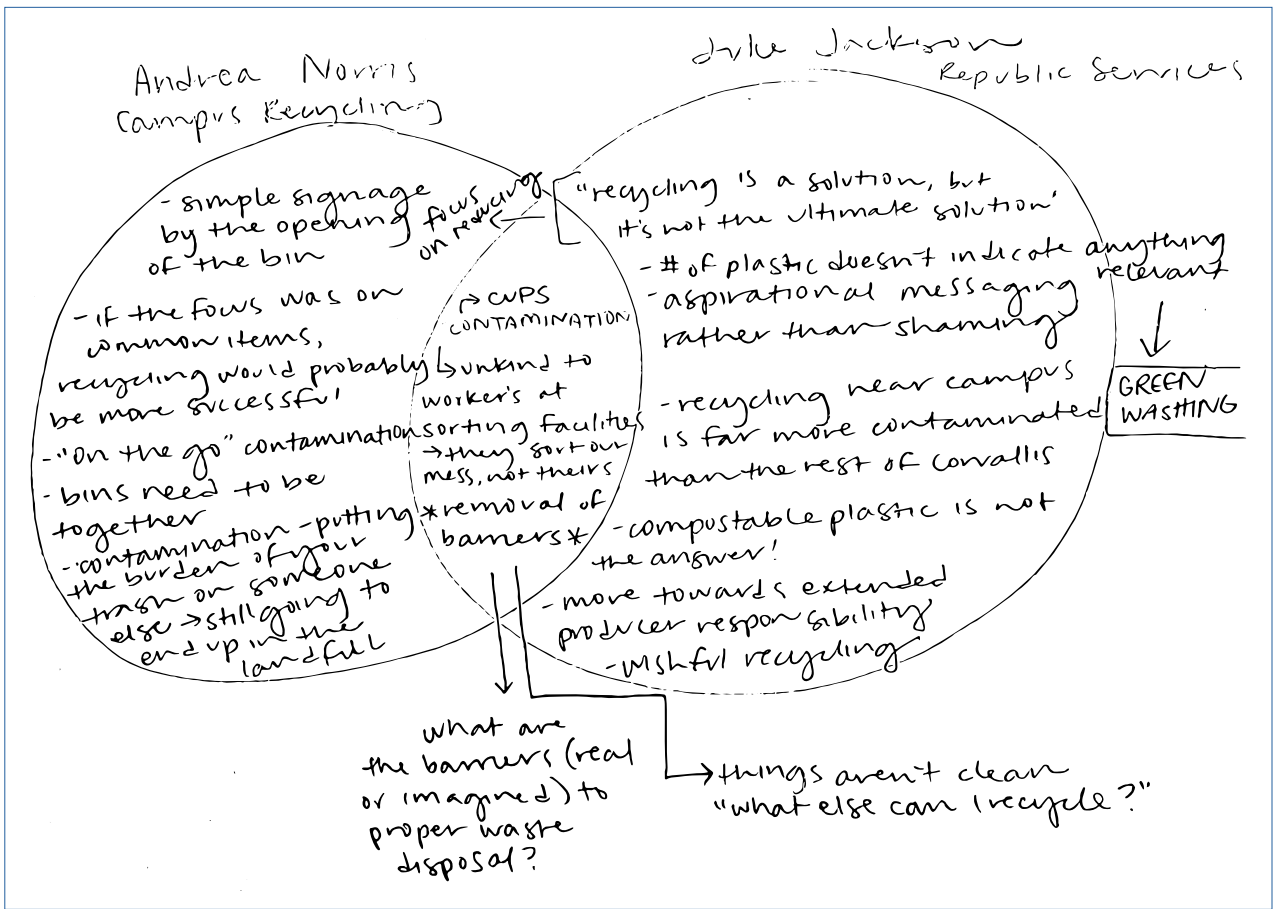 Andrea Norris
Campus Recycling
- simple signage
by the opening
of the bin
- if the focus was on
common items,
recycling would probably
be more successful
- "on the go" contamination
- bins need to be
together
- contamination - putting
the burden of your
trash on someone
else → still going to
end up in the
landfill
focus
on reducing
→ CUPS
CONTAMINATION
↳ unkind to
worker's at
sorting facilities
→ they sort our
mess, not theirs
*removal of
barriers*
Jackson
Republic Services
"recycling is a solution, but
it's not the ultimate solution'
- # of plastic doesn't indicate anything
relevant
- aspirational messaging
rather than shaming
GREEN
WASHING
- recycling near campus
is far more contaminated
than the rest of Corvallis
- compostable plastic is not
the answer!
- more towards extended
producer responsibility
- wishful recycling
what are
the barriers (real
or imagined) to
proper waste
disposal?
→ things aren't clean
"what else can I recycle?"